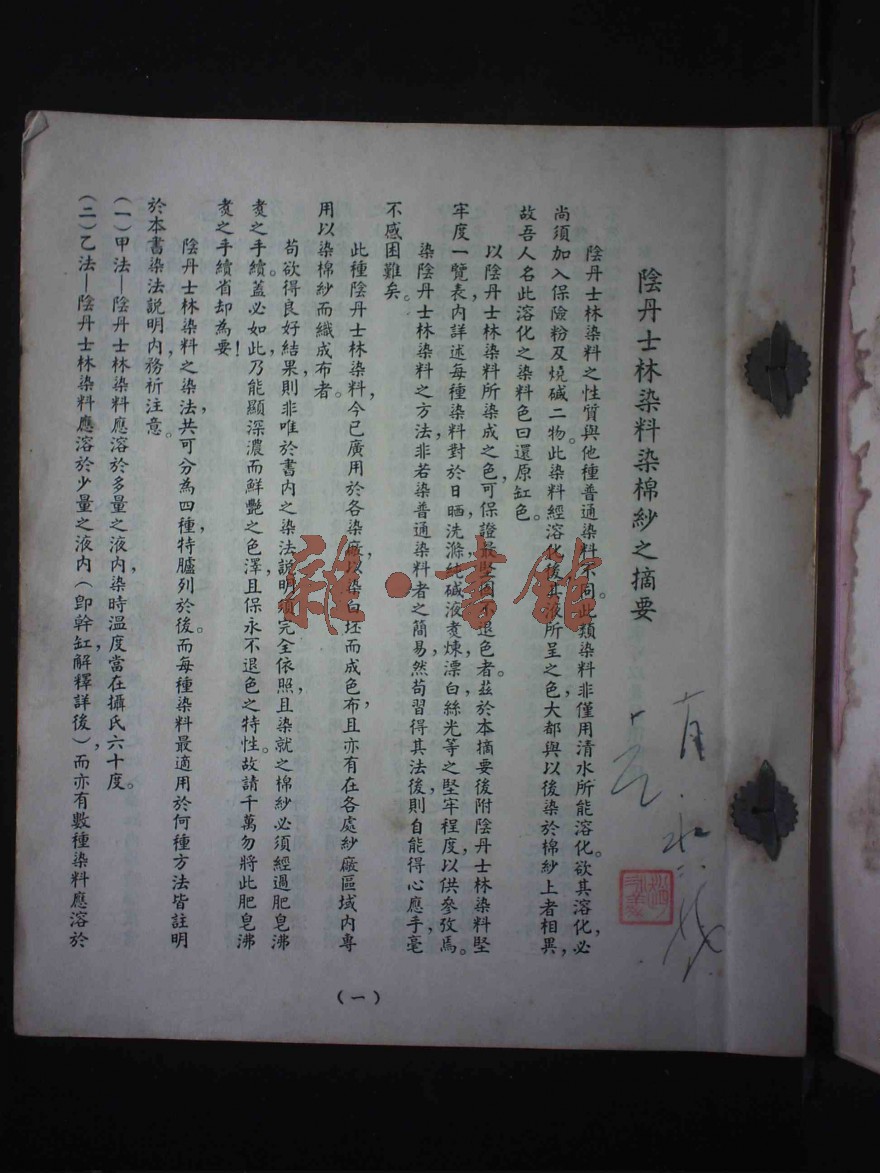 陰丹士林染料染棉紗之摘要
陰丹士林染料之性質與他種普通染料不同。此類染料非僅用清水所能溶化。欲其溶化,必
尚須加入保險粉及燒碱二物。此染料經溶化後,其液所呈之色,大都與以後染於棉紗上者相異,
故吾人名此溶化之染料色曰還原缸色。
以陰丹士林染料所染成之色,可保證最堅固不退色者。茲於本摘要後附陰丹士林染料堅
牢度一覽表,內詳述每種染料對於日晒洗滌純碱液煑煉漂白絲光等之堅牢程度,以供參攷焉。
染陰丹士林染料之方法,非若染普通染料者之簡易,然苟習得其法後,則自能得心應手,毫
不感困難矣。
此種陰丹士林染料,今已廣用於各染廠,以染白坯而成色布,且亦有在各處紗廠區域內專
用以染棉紗而織成布者。
苟欲得良好結果,則非唯於書內之染法說明須完全依照,且染就之棉紗必須經過肥皂沸
煑之手續。蓋必如此,乃能顯深濃而鮮艷之色澤,且保永不退色之特性。故請千萬勿將此肥皂沸
煑之手續省却為要!
陰丹士林染料之染法,共可分為四種,特臚列於後。而每種染料最適用於何種方法,皆註明
於本書染法說明內,務祈注意。
(一)甲法—陰丹士林染料應溶於多量之液內,染時溫度當在攝氏六十度。
(二)乙法—陰丹士林染料應溶於少量之液內(卽幹缸解釋詳後),而亦有數種染料應溶於
(一)
雜·書館